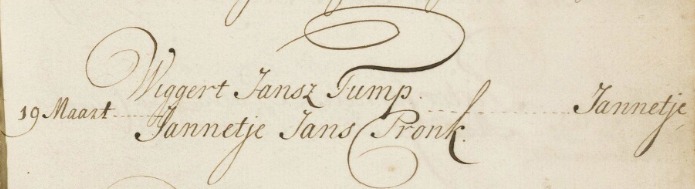 Wiggert Jansz Tump.
19 Maart Jannetje
Jannetje Jans Pronk.